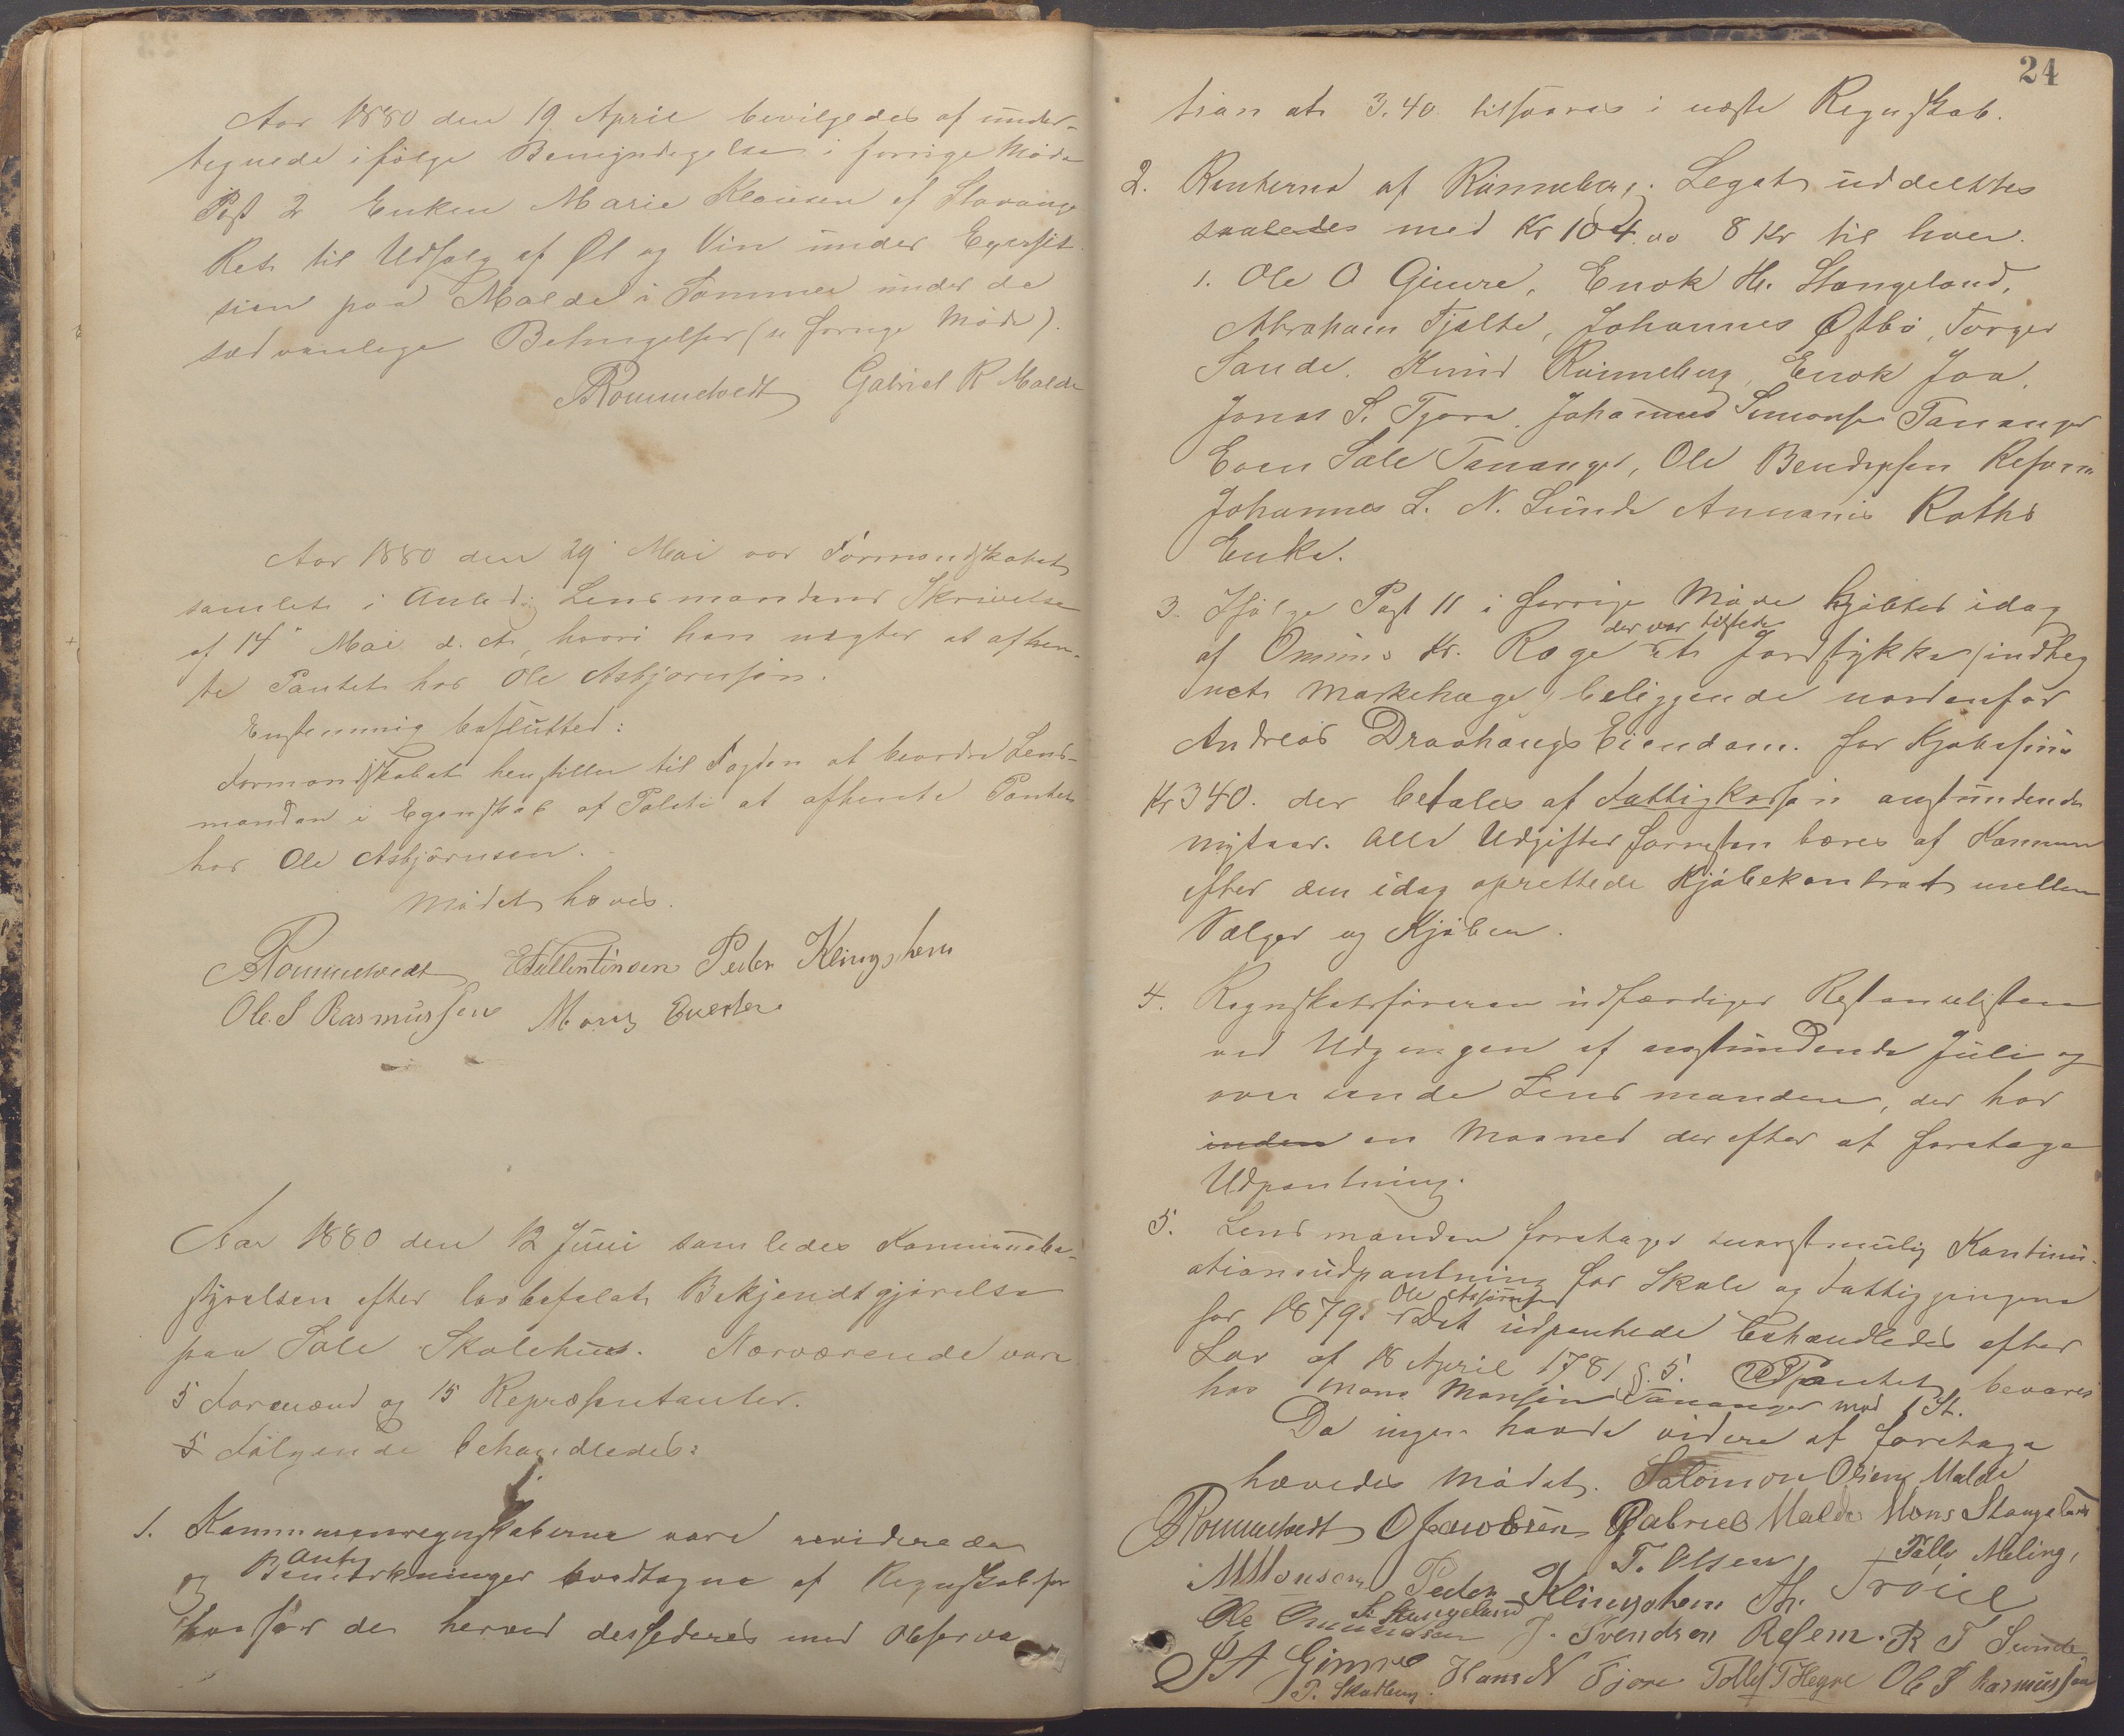 Aar 1880 den 19 April bevilgedes af under-
tegnede ifølge Bemyndigelse i forrige Møde
Post 2 Enken Marie Klausen af Stavanger
Ret til Udsalg af Øl og Vin under Exersit
sien paa Malde i Sommer under de
sædvanlige Betingelser (se forrige Møde).
Rommetvedt Gabriel R Malde
Aar 1880 den 29 Mai var Formandskabet
samlet i Anled. Lensmandens Skrivelse
af 14 Mai d. A, hvori han nægter at afhen-
te Pantet hos Ole Asbjørnsøn.
Enstemmig besluttet:
Formandskabet henstiller til Fogden at beordre Lens-
manden i Egenskab af Politi at afhente Pantet
hos Ole Asbjørnsen.
Mødet hæves.
Rommetvedt E Tallentinsen Peder Klingsheim
Ole. S Rasmussen Mons
Aar 1880 den 12 Juni samledes Kommunebe-
styrelsen efter lovbefalet Bekjendtgjørelse
paa Sole Skolehus. Nærværende vare
5 Formænd og 15 Repræsentanter.
5 Følgende behandledes:
1. Kommuneregnskaberne vare reviderede
og Antegninger modtagne af Regnskabsfør
hvorfor de herved desideres med Observa
24
tion at 3.40 tilføres i næste Regnskab.
2. Renterne af Rønneberg. Legat uddeltes
saaledes med Kr 104.00 8 Kr til hver.
1. Ole O Gimre, Enok H. Stangeland,
Abraham Fjelte, Johannes Østbø, Torger
Sande. Knud Rønneberg, Enok Joa,
Jonas S. Tjora. Johannes Simonsen Tananger
Even Sole Tananger, Ole Bendixsen Refsem
Johannes L. N. Sunde Annanis Roths
Enke.
3. Ifølge Post 11 i forrige Møde kjøbtes idag
der var tilstede
af Omund Kr. Røge et Jordstykke (indheg
net Markehage) beliggende nordenfor
Andreas Draahougs Eiendom. for Kjøbesum
Kr 340. der betales af Fattigkassen i anstundende
nytaar. Alle Udgifter forresten bæres af Kommun
efter den idag oprettede Kjøbekontrakt mellem
Sælger og Kjøber.
4. Regnskabsføreren udfærdiger Restanselisten
ved Udgangen af anstundende Juli og
over sende Lensmanden, der har
inden en Maaned derefter at foretage
Udpantning.
5. Lensmanden foretager snarestmulig Kontinu-
ationsudpantning for Skole og Fattigpengene
Ole Asbjørnsen
for 1879. Det udpantede behandledes efter
Lov af 18 April 1781 §. 5. Pantet bevares
hos Mons Monsøn Tananger mod 1 St.
Da ingen havde videre at foretage
hævedes Mødet. Salomon Olsen Malde
Rommetvedt O Jacobsen Gabriel Malde Mons Stangeland
M Monsen Peder Klingsheim T. Olsen Tolly Meling,
Ole Omundsen S. Stangeland Th. Trøiel
J. Svendsen Refsem. R T Sunde
S A Gimre Hans N Tjore Tollef T Hegre Ole S Rasmussen
P. Skadberg.